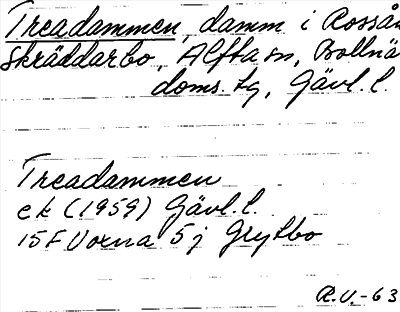 Treadammen, damm i Rosså
Skräddarbo, Alfta sn, Bollnä
doms. tg, Gävl. l.
Treadammen
ek (1959) Gävl. l.
15F Voxna 5j Grytbo
R.V.-63